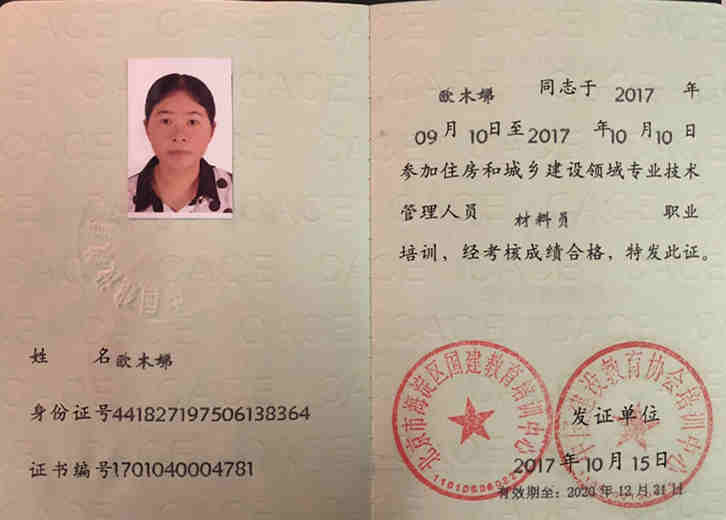 姓 名 欧木娣
身份证号441827197506138364
证书编号1701040004781
欧木娣 同志于 2017 年
09月 10日至2017 年10 月10 日
参加住房和城乡建设领域专业技术
管理人员 材料员 职业
培训、经考核成绩合格，特发此证。
北京市海淀区国建教育培训中心
建设教育协会培训中心
发证单位
2017 年 10 月 15 日
有效期至：2020 年 12 月 31 日